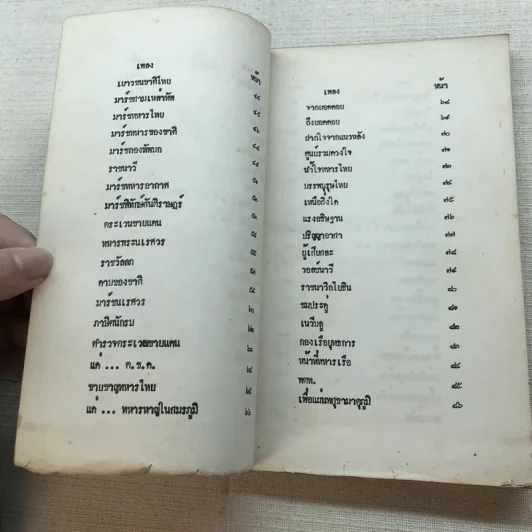 เพลง
หน้า
เยาวชนชาติไทย
มาร์ชสามเหล่าทัพ ๔๔
มาร์ชทหารไทย ๔๕
มาร์ชทหารของชาติ ๔๖
มาร์ชกองทัพบก
ราชนาวี
มาร์ชทหารอากาศ
มาร์ชพิทักษ์สันติราษฎร์
ตระเวนชายแดน
ทหารพระนเรศวร
ราชวัลลภ
ดาบของชาติ
มาร์ชนเรศวร
ภาษิตนักรบ
ตำรวจตระเวนชายแดน
แด่ ... ต.ช.ด.
ชายชาญทหารไทย
แด่ ... ทหารหาญในสมรภูมิ
เพลง หน้า
จากยอดดอย ๖๘
ถึงยอดดอย ๖๙
ฝากใจจากแนวหลัง ๗๐
ศูนย์รวมดวงใจ ๗๒
น้ำใจทหารไทย ๗๓
บรรพบุรุษไทย ๗๔
เหนือสิ่งใด ๗๕
แรงอธิษฐาน ๗๖
ปริญญาอากา ๗๗
ผู้เสียสละ ๗๘
วอลซ์นาวี ๗๙
ราชนาวิกโยธิน ๘๐
ชมประดู่ ๘๑
เนวีบลู ๘๒
กองเรือยุทธการ ๘๓
หน้าที่ทหารเรือ ๘๔
ทศท. ๘๕
เพื่อแผ่นพสุธามาตุภูมิ ๘๖